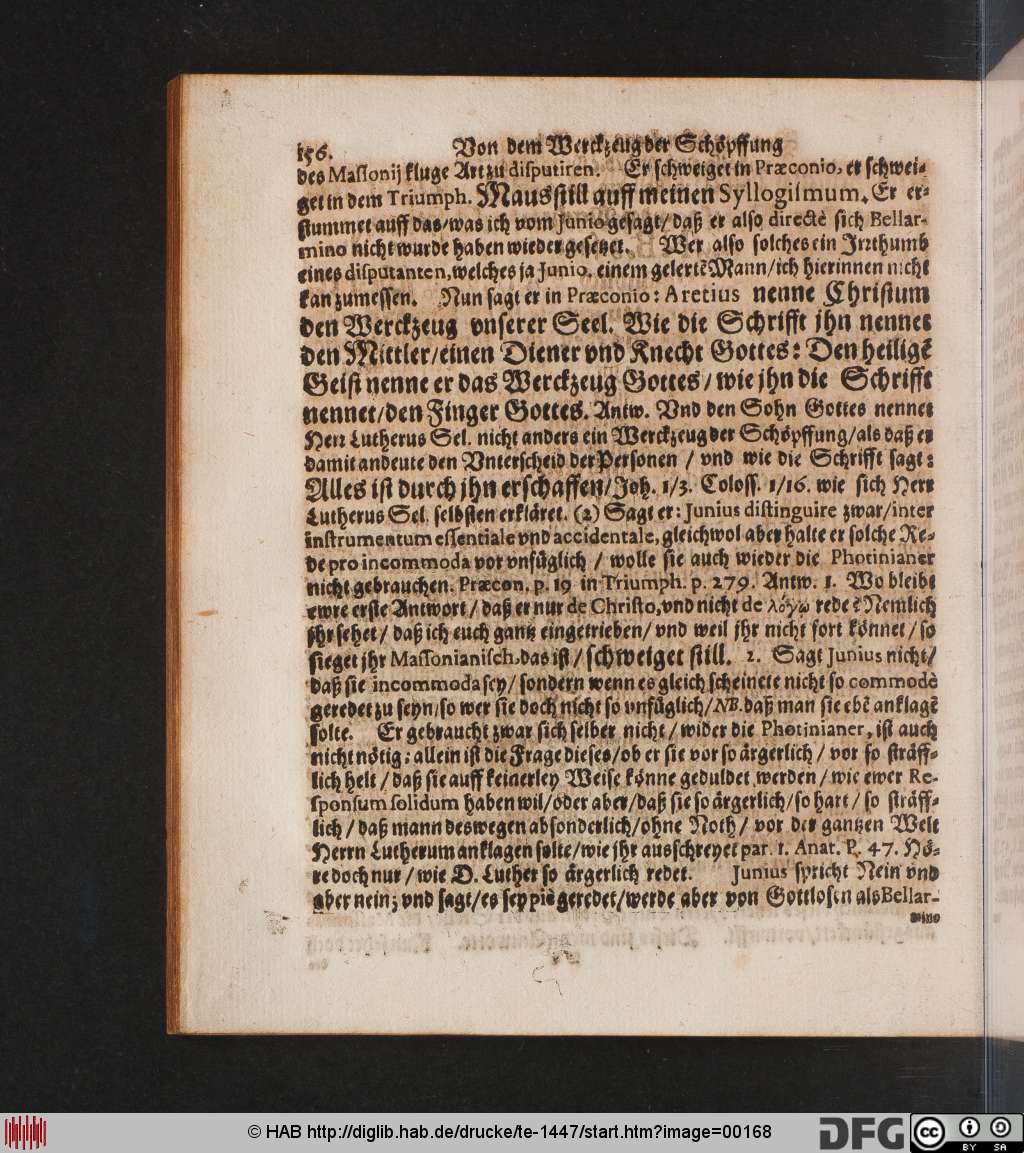 156. Von dem Werckzeug der Schöpffung
des Maſſonij kluge Art zu diſputiren. Er ſchweiget in Præconio, er ſchwei-
get in dem Triumph. Maus ſtill auff meinen Syllogiſmum. Er er-
ſtummet auff das/was ich vom Junio geſagt/daß er alſo directè ſich Bellar-
mino nicht wurde haben wieder geſetzet. Wer alſo ſolches ein Irꝛthumb
eines diſputanten, welches ja Junio, einem gelertē Mann/ich hierinnen nicht
kan zumeſſen. Nun ſagt er in Præconio: Aretius nenne Chriſtum
den Werckzeug vnſerer Seel. Wie die Schrifft jhn nennet
den Mittler/einen Diener vnd Knecht Gottes: Den heiligē
Geiſt nenne er das Werckzeug Gottes/wie jhn die Schrifft
nennet/den Finger Gottes. Antw. Vnd den Sohn Gottes nennet
Herꝛ Lutherus Sel. nicht anders ein Werckzeug der Schöpffung/als daß er
damit andeute den Vnterſcheid der Perſonen / vnd wie die Schrifft ſagt:
Alles iſt durch jhn erſchaffen/Joh. 1/3. Coloſſ. 1/16. wie ſich Herr
Lutherus Sel. ſelbſten erkläret. (2) Sagt er: Junius diſtinguire zwar/inter
inſtrumentum eſſentiale vnd accidentale, gleichwol aber halte er ſolche Re-
de pro incommoda vor vnfüglich / wolle ſie auch wieder die Photinianer
nicht gebrauchen. Præcon. p. 19 in Triumph. p. 279. Antw. 1. Wo bleibt
ewre erſte Antwort/ daß er nur de Chriſto, vnd nicht de λόγω rede? Nemlich
jhr ſehet/ daß ich euch gantz eingetrieben/ vnd weil jhr nicht fort könnet/ ſo
ſieget jhr Maſſonianiſch, das iſt/ſchweiget ſtill. 2. Sagt Junius nicht/
daß ſie incommoda ſey/ ſondern wenn es gleich ſcheinete nicht ſo commodè
geredet zu ſeyn/ſo wer ſie doch nicht ſo vnfüglich/NB. daß man ſie ebē anklagē
ſolte. Er gebraucht zwar ſich ſelber nicht/ wider die Photinianer, iſt auch
nicht nötig; allein iſt die Frage dieſes/ob er ſie vor ſo ärgerlich/ vor ſo ſträff-
lich helt/ daß ſie auff keinerley Weiſe könne geduldet werden/ wie ewer Re-
ſponſum ſolidum haben wil/oder aber/daß ſie ſo ärgerlich/ſo hart/ ſo ſträff-
lich/ daß mann deswegen abſonderlich/ohne Noth/ vor der gantzen Welt
Herrn Lutherum anklagen ſolte/wie jhr ausſchreyet par. 1. Anat. P. 47. Hö-
re doch nur/ wie D. Luther ſo ärgerlich redet. Junius ſpricht Nein vnd
aber nein; vnd ſagt/es ſey piè geredet/werde aber von Gottloſen als Bellar-
mino
© HAB http://diglib.hab.de/drucke/te-1447/start.htm?image=00168
DFG
cc BY SA